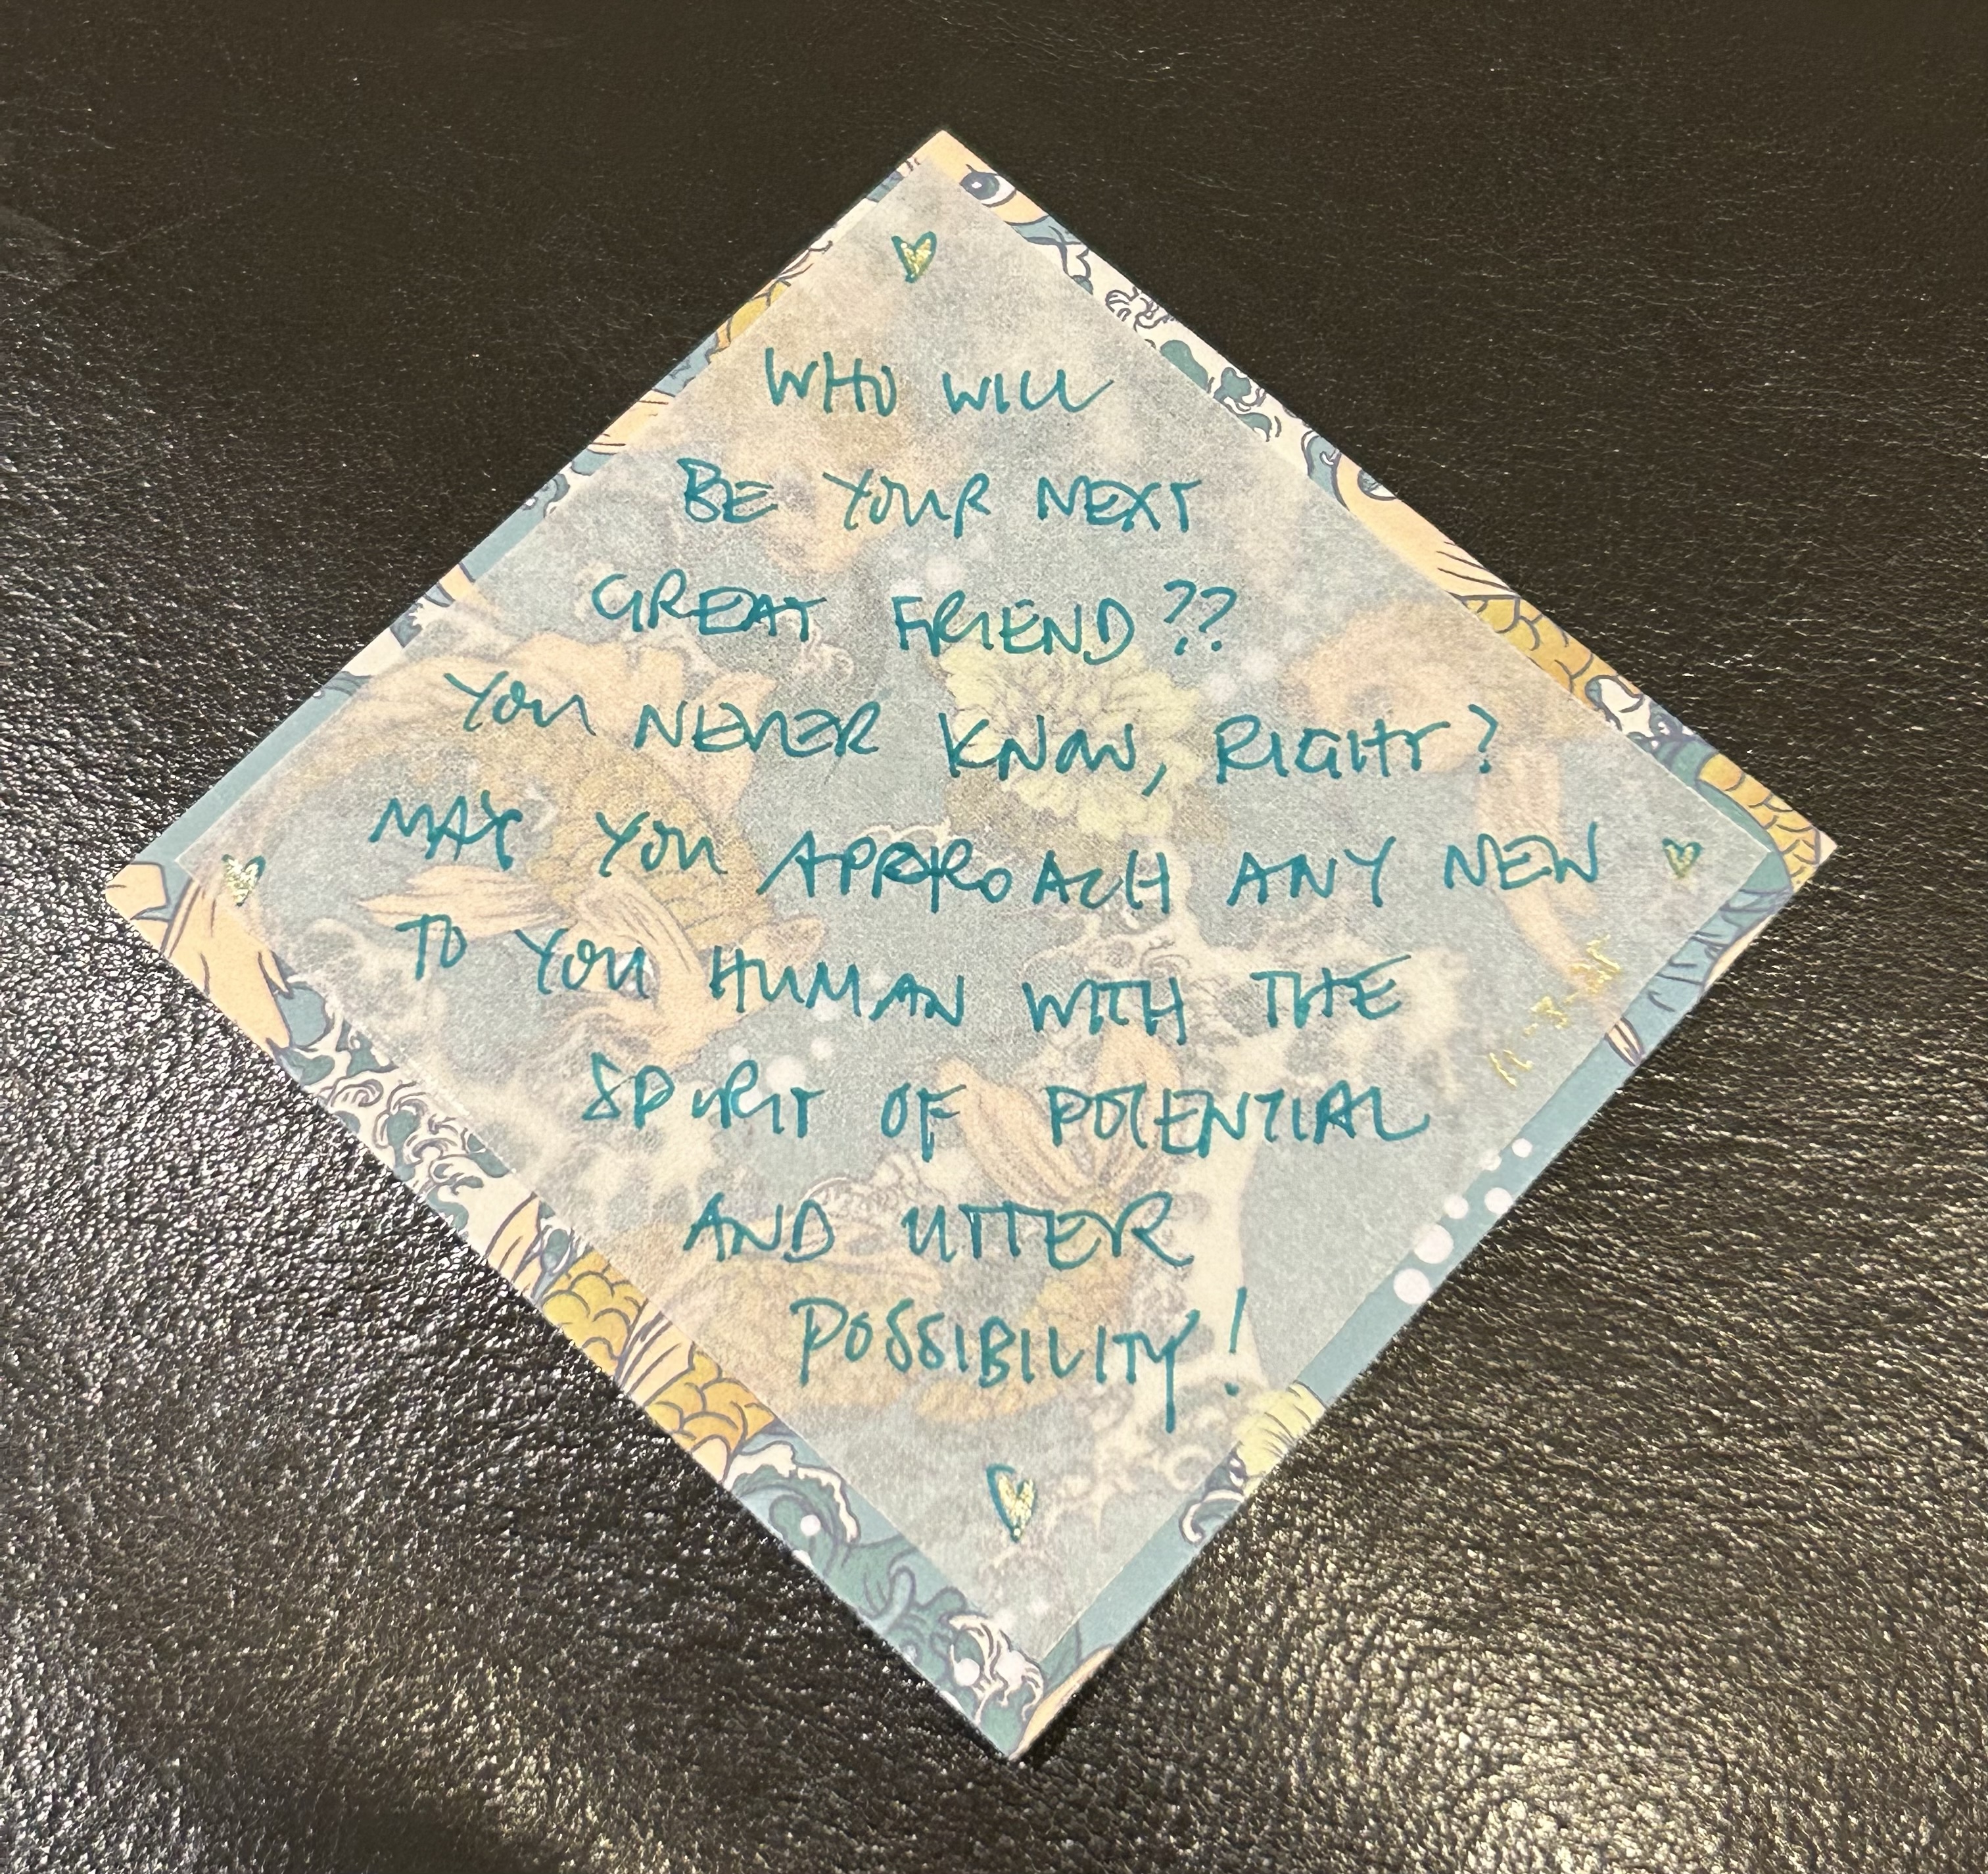 WHO WILL
BE YOUR NEXT
GREAT FRIEND??
YOU NEVER KNOW, RIGHT?
MAY YOU APPROACH ANY NEW
TO YOU HUMAN WITH THE
SPIRIT OF POTENTIAL
AND UTTER
POSSIBILITY!
11-3-25